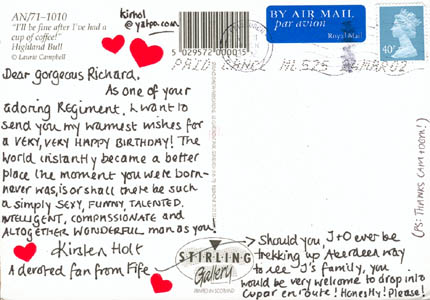 AN/71-1010
"I'll be fine after I've had a
cup of coffee!"
Highland Bull
© Laurie Campbell
kirhol
@yahoo.com
5 029572 000015
BY AIR MAIL
par avion
Royal Mail
40
PAID
MAR 02
Dear gorgeous Richard,
As one of your
adoring Regiment, I want to
send you my warmest wishes for
a VERY, VERY HAPPY BIRTHDAY! The
world instantly became a better
place the moment you were born-
never was, is or shall there be such
a simply SEXY, FUNNY, TALENTED,
INTELLIGENT, COMPASSIONATE and
ALTOGETHER WONDERFUL man as you!
Kirsten Holt
A devoted fan from Fife
STIRLING
Gallery
PRINTED IN SCOTLAND
Should you, J+O ever be
trekking up Aberdeen way
to see J's family, you
would be very welcome to drop into
Cupar en route! Honestly! Please!
(PS: THANKS CAM+DOM!)